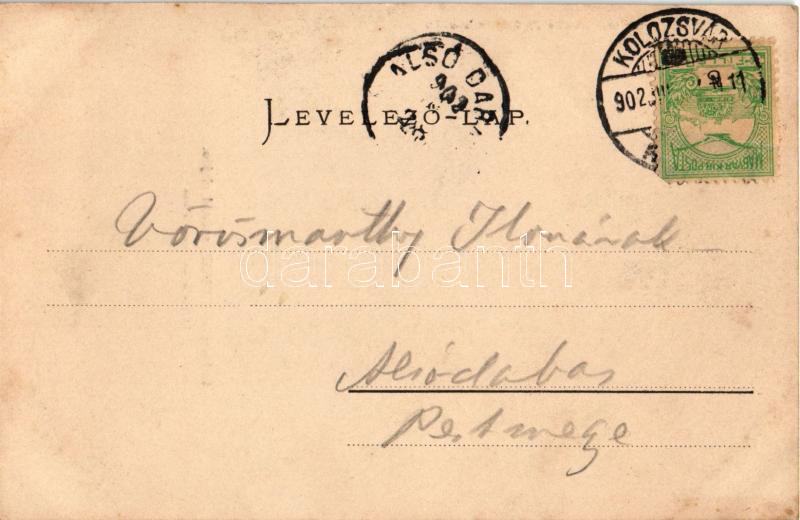 KOLOZSVÁR
902
11
ALSÓ DAB
902
LEVELEZŐ-LAP.
MAGYAR KIR. POSTA
Vörösmarthy Ilonának
darabanth
Alsódabas
Pestmege